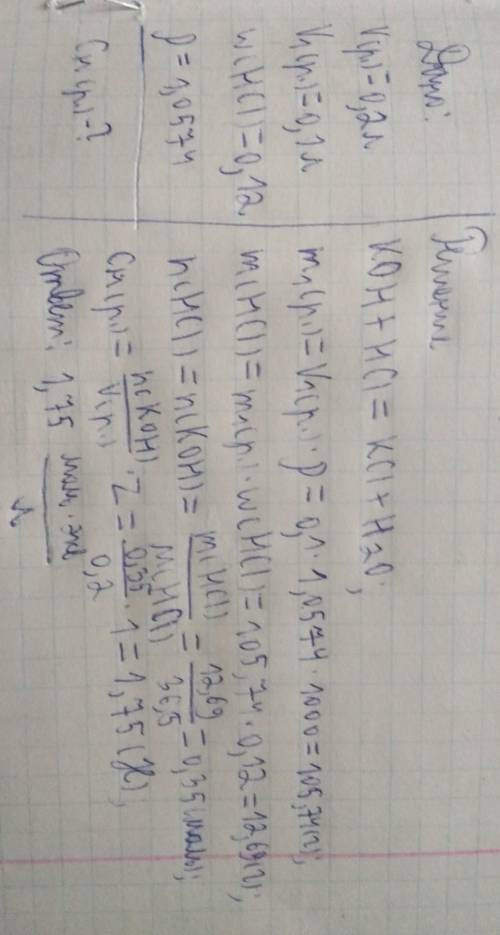 Дано:
V(р.)=0,2л
V₁(р.)=0,1л
w(HCl)=0,12
ρ=1,0574
Cн(р.)-?
Решение
KOH+HCl=KCl+H₂O;
m₁(р.)=V₁(р.)·ρ=0,1·1,0574·1000=105,74(г);
m(HCl)=m₁(р.)·w(HCl)=105,74·0,12=12,69(г);
n(HCl)=n(KOH)=m(HCl)/M(HCl)=12,69/36,5=0,35(моль);
Cн(р.)=n(KOH)/V(р.)·Z=0,35/0,2·1=1,75(н);
Ответ: 1,75 моль·экв/л